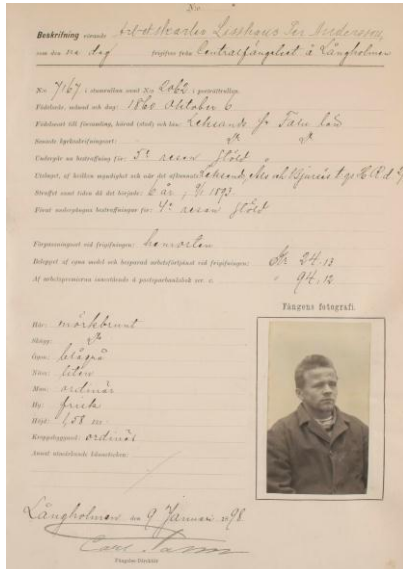 N:o
Beskrifning rörande Arbetskarlen Lisshans Per Andersson,
som denna dag frigifves från Centralfängelset å Långholmen
N:o 7167 i stamrullan samt N:o 2062 i porträttrullan.
Födelseår, månad och dag: 1860 Oktober 6
Födelseort till församling, härad (stad) och län: Leksands fg Falu län
Senaste kyrkoskrifningsort: d:o d:o
Undergår nu bestraffning för: 5:te resan stöld
Straffet samt tiden då det började: 6 år, 1893
Förut undergången bestraffningar för: 4:e resan stöld
Förpassningsort vid frigifningen: hemorten
Beloppet af egna medel och besparad arbetsförtjänst vid frigifningen: Kr 24.13
Af arbetspremierna innestående å postsparbanksbok " 94.12
Fångens fotografi.
Hår: mörkbrunt
Skägg: d:o
Ögon: blågrå
Näsa: liten
Mun: ordinär
Hy: frisk
Höjd: 1,58 m.
Kroppsbyggnad: ordinär
Annat utmärkande kännetecken:
Långholmen den 9 Januari 1898
Fängelse-Direktör